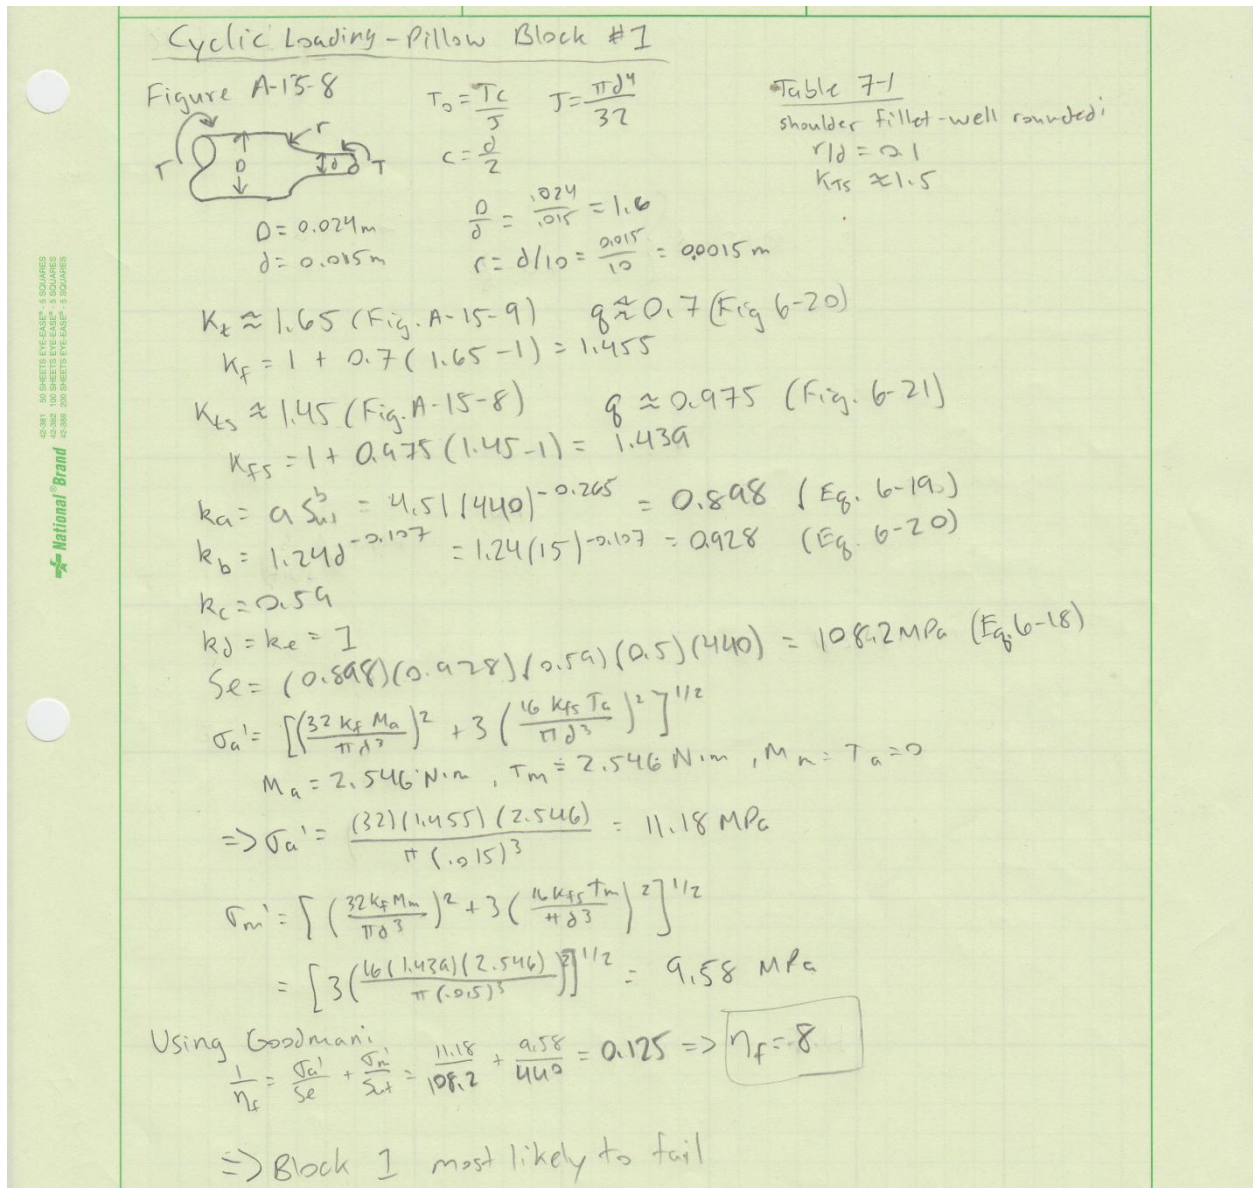 Cyclic Loading - Pillow Block #1
Figure A-15-8
T₀ = Tc/J J = πd⁴/32
c = d/2
Table 7-1
shoulder fillet - well rounded:
r/d = 0.1
KTS ≈ 1.5
T D r d T
D = 0.024m
d = 0.015m
D/d = .024/.015 = 1.6
r = d/10 = 0.015/10 = 0.0015 m
Kt ≈ 1.65 (Fig. A-15-9) q ≈ 0.7 (Fig 6-20)
Kf = 1 + 0.7(1.65-1) = 1.455
Kts ≈ 1.45 (Fig. A-15-8) q ≈ 0.975 (Fig. 6-21)
Kfs = 1 + 0.975(1.45-1) = 1.439
ka = a Sut^b = 4.51(440)^-0.265 = 0.898 (Eq. 6-19)
kb = 1.24d^-0.107 = 1.24(15)^-0.107 = 0.928 (Eq. 6-20)
kc = 0.59
kd = ke = 1
Se = (0.898)(0.928)(0.59)(0.5)(440) = 108.2 MPa (Eq. 6-18)
σa' = [(32 Kf Ma/πd³)² + 3(16 Kfs Ta/πd³)²]^1/2
Ma = 2.546 N·m, Tm = 2.546 N·m, Mm = Ta = 0
=> σa' = (32)(1.455)(2.546)/π(.015)³ = 11.18 MPa
σm' = [(32 Kf Mm/πd³)² + 3(16 Kfs Tm/πd³)²]^1/2
= [3(16(1.439)(2.546)/π(.015)³)²]^1/2 = 9.58 MPa
Using Goodman:
1/nf = σa'/Se + σm'/Sut = 11.18/108.2 + 9.58/440 = 0.125 => nf = 8
=> Block 1 most likely to fail
42-381 50 SHEETS EYE-EASE® - 5 SQUARES
42-382 100 SHEETS EYE-EASE® - 5 SQUARES
42-389 200 SHEETS EYE-EASE® - 5 SQUARES
National® Brand